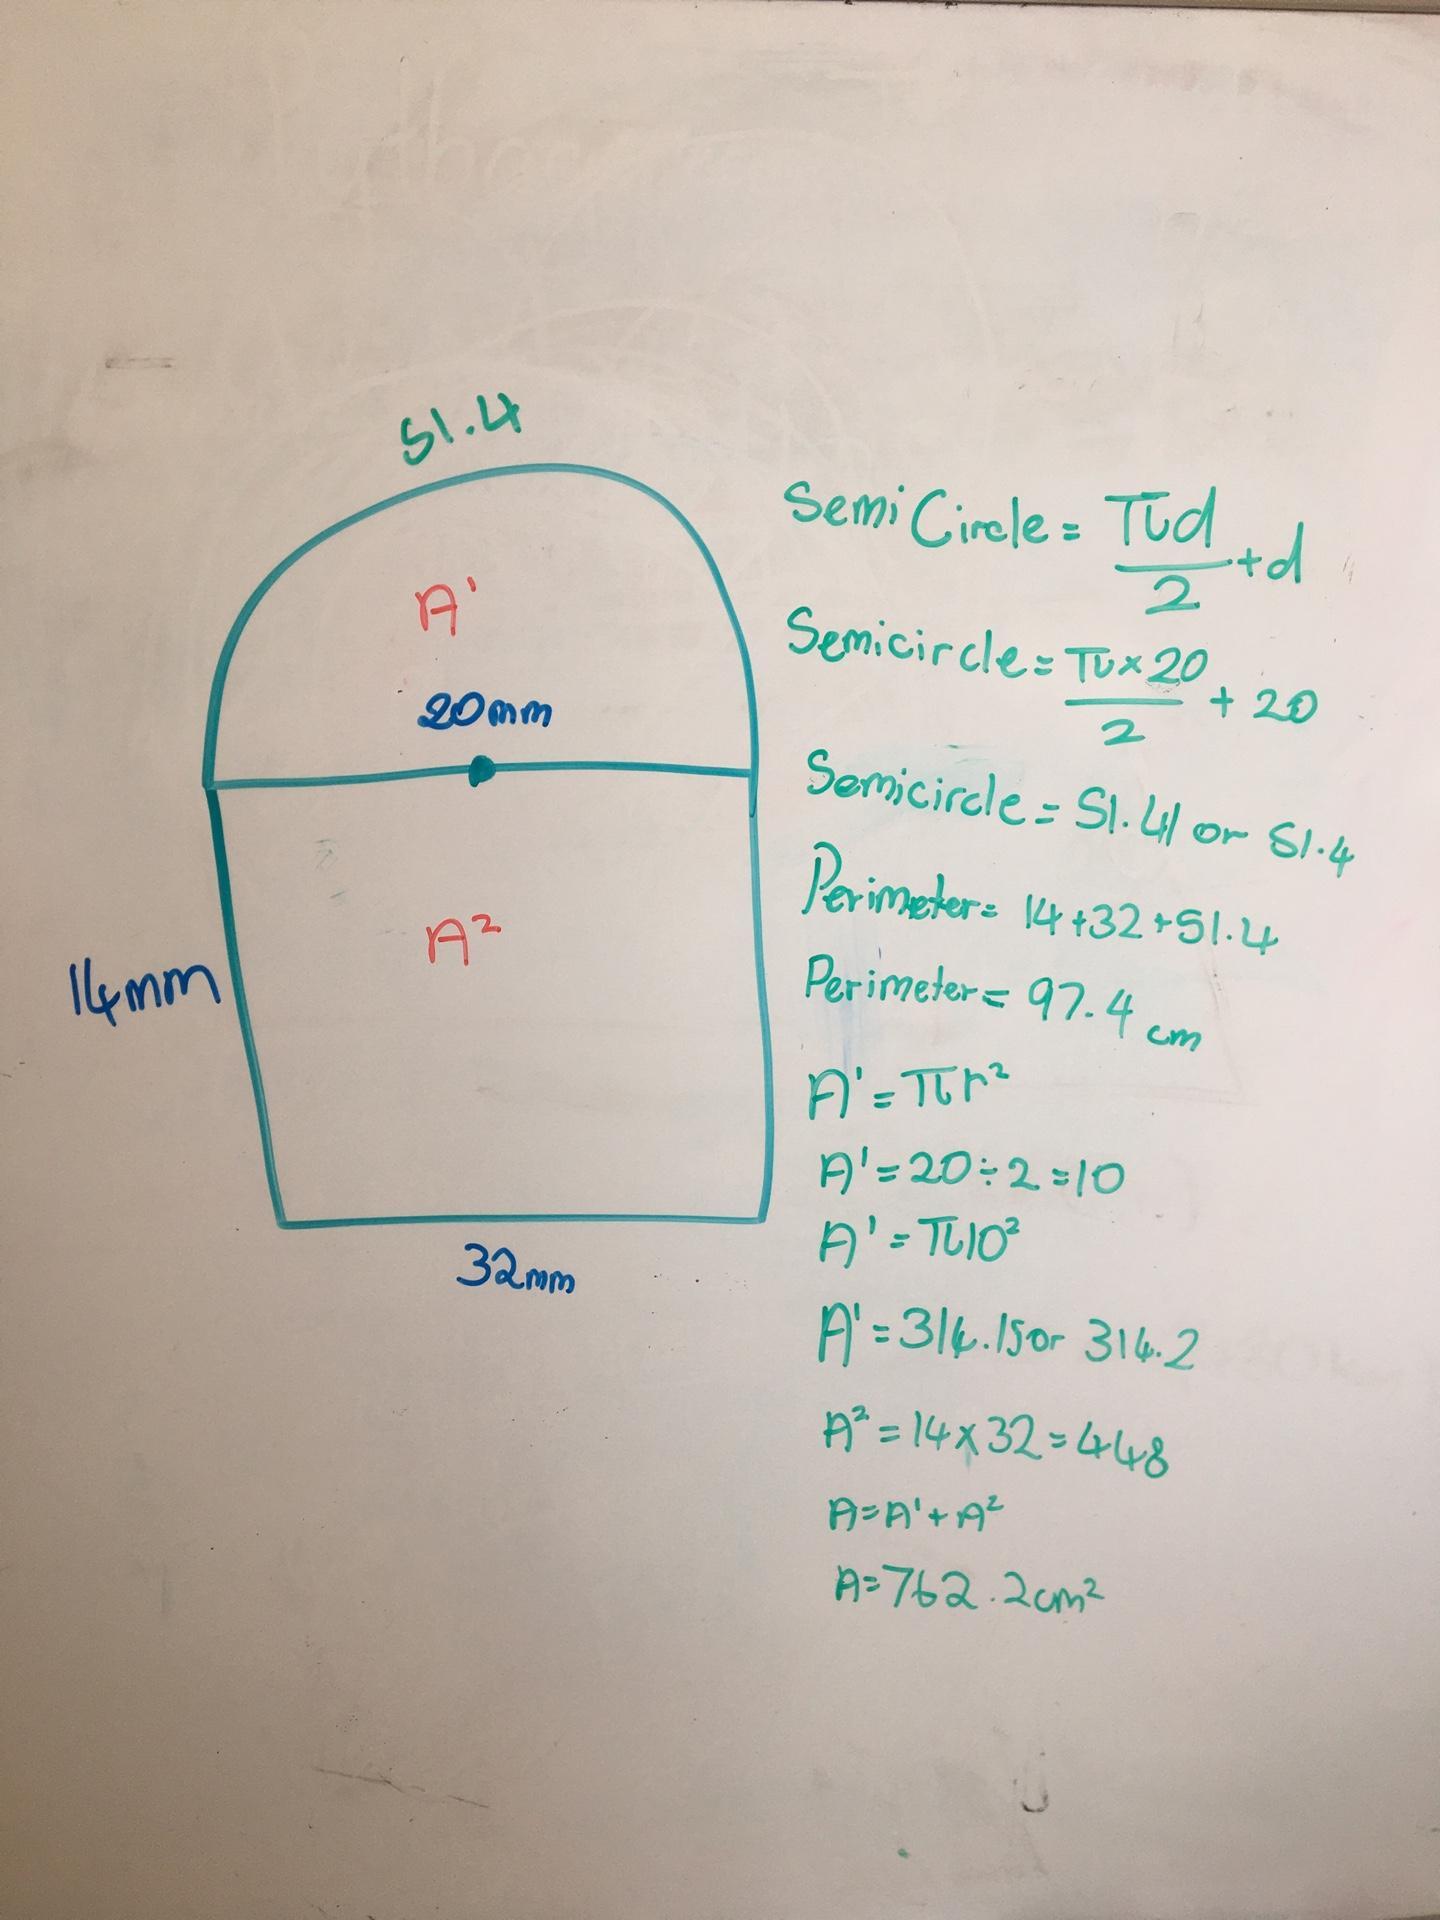 51.4
A¹
20mm
A²
14mm
32mm
Semi Circle = πd/2 + d
Semicircle = π×20/2 + 20
Semicircle = 51.41 or 51.4
Perimeter = 14+32+51.4
Perimeter = 97.4 cm
A¹ = πr²
A¹ = 20÷2 = 10
A¹ = π10²
A¹ = 314.15 or 314.2
A² = 14×32 = 448
A = A¹ + A²
A = 762.2cm²